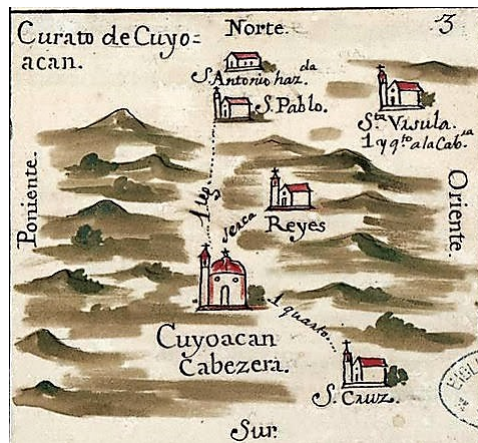 Curato de Cuyo=
acan.
Norte.
3
S. Antonio haz.da
S. Pablo.
Sta Visula.
1 y qto a la Cab.ra
Poniente.
Oriente.
Reyes
serca
Cuyoacan
Cabezera.
1 quarto
S. Cruz.
Sur.